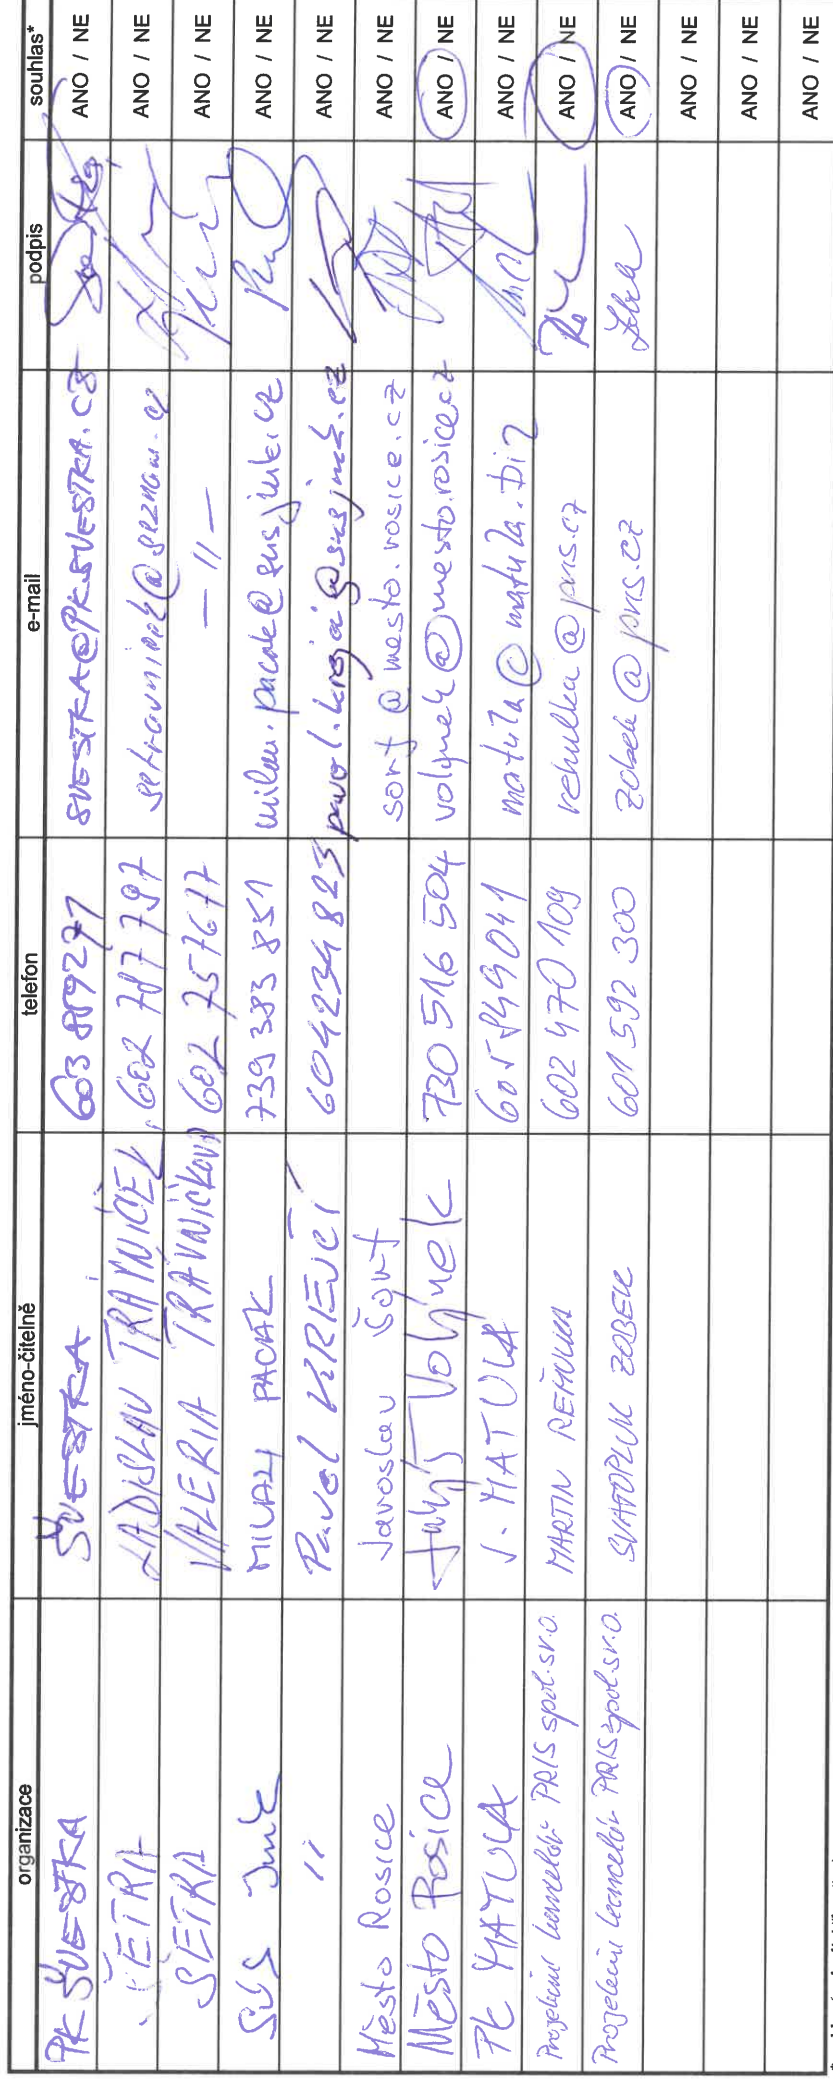 organizace jméno-čitelně telefon e-mail podpis souhlas*
PK ŠVESTKA ŠVESTKA 603 889271 SVESTKA@PKSVESTKA.CZ ANO / NE
ŠETRA LADISLAV TRAVNÍČEK 602 787 797 ANO / NE
ŠETRA VALERIA TRÁVNÍČKOVÁ 602 757677 — 〃 — ANO / NE
SÚS JmK MILAN PACAK 739 383 851 milan.pacak@susjmk.cz ANO / NE
〃 Pavel KREJČÍ 604234823 pavel.krejci@susjmk.cz ANO / NE
Město Rosice Jaroslav Šorf sorf@mesto.rosice.cz ANO / NE
Město Rosice Volynek 730 516 504 volynek@mesto.rosice.cz ANO / NE
PK MATULA J. MATULA 605849041 matula@matula.biz ANO / NE
Projekční kancelář PRIS spol. s r.o. MARTIN ŘEHULKA 602 470 109 rehulka@pris.cz ANO / NE
Projekční kancelář PRIS spol. s r.o. SVATOPLUK ZOBEK 601 592 300 zobek@pris.cz ANO / NE
ANO / NE
ANO / NE
ANO / NE